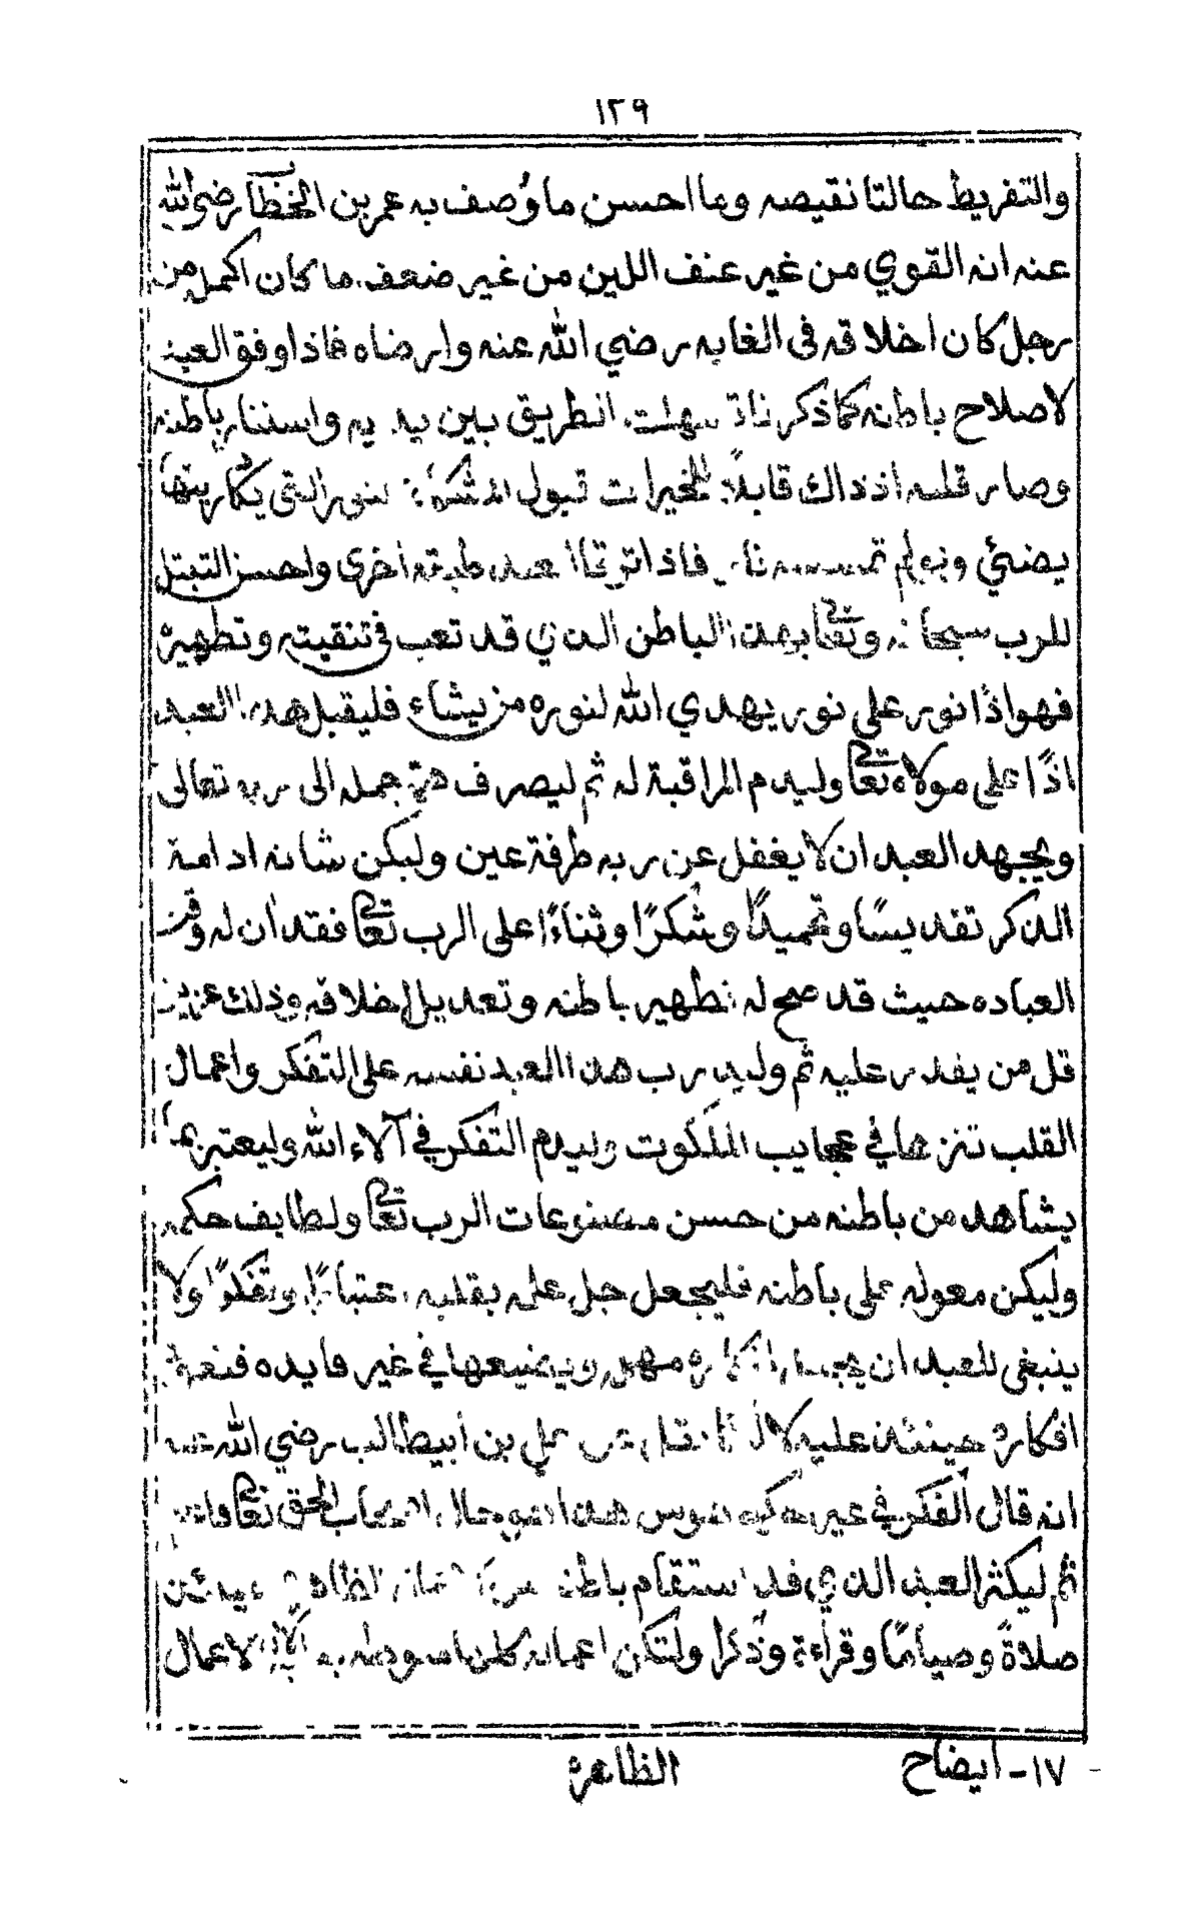 ١٢٩
والتفريط حالتا نقيصه وما احسن ما وُصف به عمر بن الخطاب رضي الله
عنه انه القوي من غير عنف اللين من غير ضعف ما كان اكمل من
رجل كان اخلاقه في الغايه رضي الله عنه وارضاه فاذا وفق العبد
لاصلاح باطنه كما ذكرنا سهلت الطريق بين يديه واستنار باطنه
وصار قلبه اذ ذاك قابلاً للخيرات قبول المشكاة للنور التي يكاد زيتها
يضئي ولو لم تمسسه نار فاذا ترقا العبد طبقة أخرى واحسن التبتل
للرب سبحانه وتعالى بهذا الباطن الذي قد تعب في تنقيته وتطهيره
فهو اذًا نور على نور يهدي الله لنوره من يشاء فليقبل هذا العبد
اذًا على مولاه تعالى وليدم المراقبة له ثم ليصرف همة جمله الى ربه تعالى
ويجهد العبد ان لا يغفل عن ربه طرفة عين وليكن شانه ادامة
الذكر تقديسًا وتحميدًا وشكرًا وثناءًا على الرب تعالى فقد أن له وقت
العباده حيث قد صح له تطهير باطنه وتعديل اخلاقه وذلك عزيز
قل من يقدر عليه ثم وليدرب هذا العبد نفسه على التفكر واعمال
القلب تنزها في عجايب الملكوت وليدم التفكر في آلاء الله وليعتبر بما
يشاهد من باطنه من حسن مصنوعات الرب تعالى ولطايف حكمه
وليكن معوله على باطنه فليجعل جل عمله بقلبه اعتبارًا وتفكرًا ولا
ينبغي للعبد ان يجعل افكاره مهملة ويضيعها في غير فايده فنعمة
افكاره حينئذ عليه لا له نقل عن علي بن أبيطالب رضي الله عنه
انه قال الفكر في غير هوس هذا
ثم ليكثر العبد الذي قد استقام باطنه من الظاهر
صلاةً وصيامًا وقراءة وذكرا ولتكن اعماله كلها لا الاعمال
١٧ - ايضاح
الظاهرة